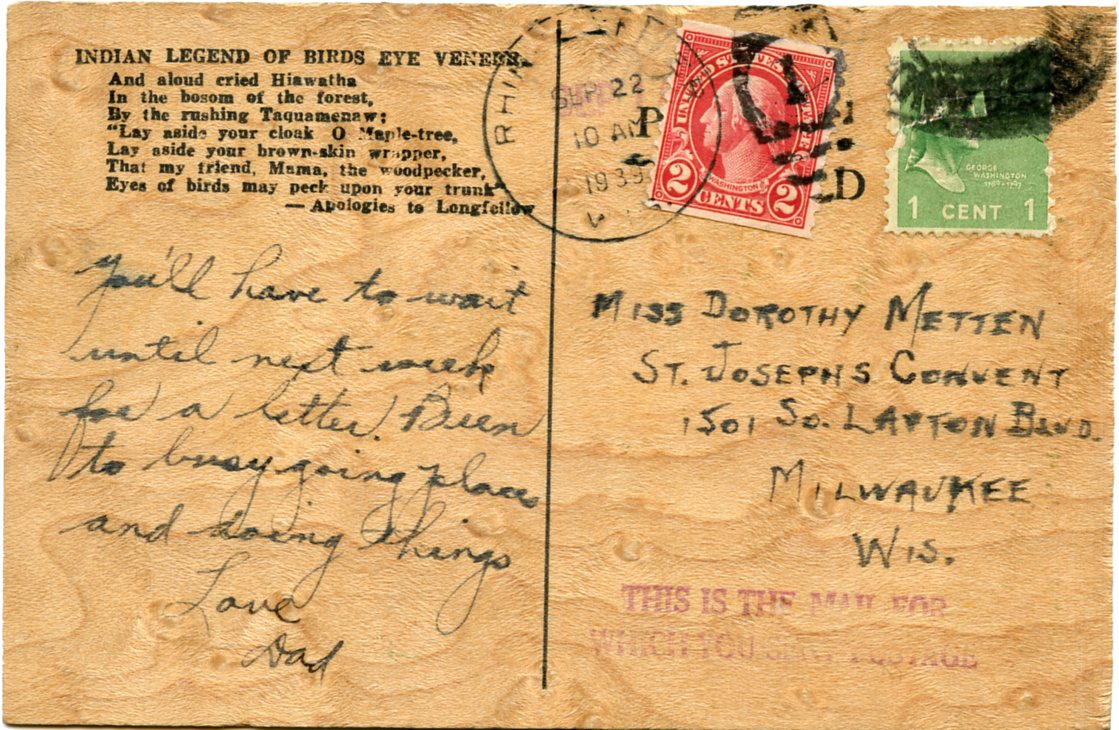 INDIAN LEGEND OF BIRDS EYE VENEER
And aloud cried Hiawatha
In the bosom of the forest,
By the rushing Taquamenaw;
"Lay aside your cloak O Maple-tree,
Lay aside your brown-skin wrapper,
That my friend, Mama, the woodpecker,
Eyes of birds may peck upon your trunk"
— Apologies to Longfellow
You'll have to wait
until next week
for a letter. Been
to busy going places
and doing things
Love
Dad
SEP 22
10 AM
1939
UNITED STATES
WASHINGTON
2 CENTS 2
GEORGE
WASHINGTON
1789-1797
1 CENT 1
MISS DOROTHY METTEN
ST. JOSEPHS CONVENT
1501 SO. LAYTON BLVD.
MILWAUKEE
WIS.
THIS IS THE MAIL FOR
WHICH YOU SENT POSTAGE